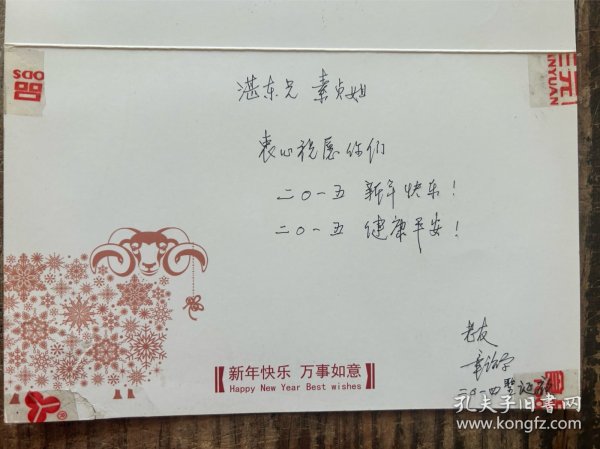 湛东兄 素贞姐
衷心祝愿你们
二〇一五 新年快乐!
二〇一五 健康平安!
老友
二〇一四
新年快乐 万事如意
Happy New Year Best wishes
SDO
INYUAN
孔夫子旧书网
www.kongfz.com